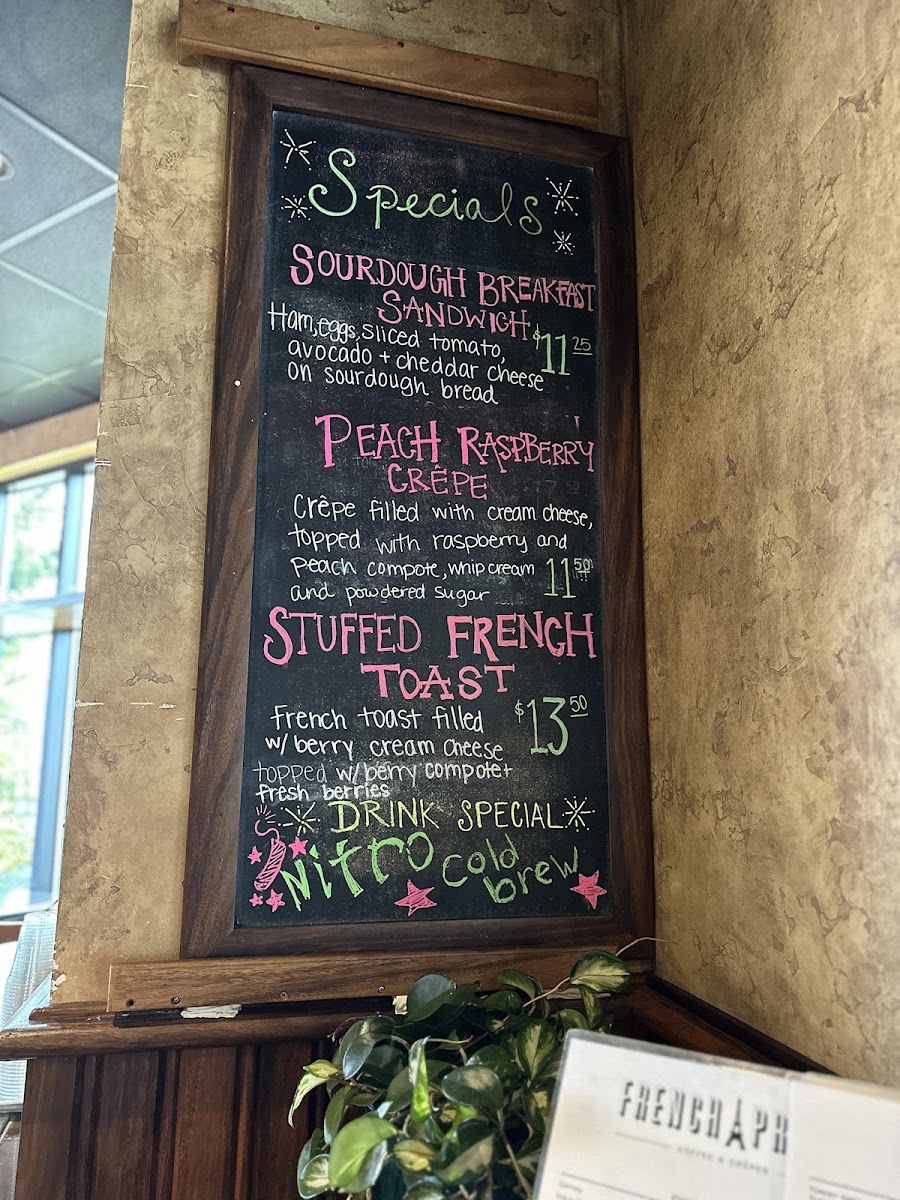 Specials
SOURDOUGH BREAKFAST
SANDWICH
Ham, eggs, sliced tomato,
avocado + cheddar cheese
on sourdough bread
$11 25
PEACH RASPBERRY
CRÊPE
Crêpe filled with cream cheese,
topped with raspberry and
peach compote, whip cream
and powdered sugar
11 50
STUFFED FRENCH
TOAST
French toast filled
w/ berry cream cheese
topped w/ berry compote +
fresh berries
$13 50
DRINK SPECIAL
Nitro Cold
brew
FRENCH PR
COFFEE & CRÊPES